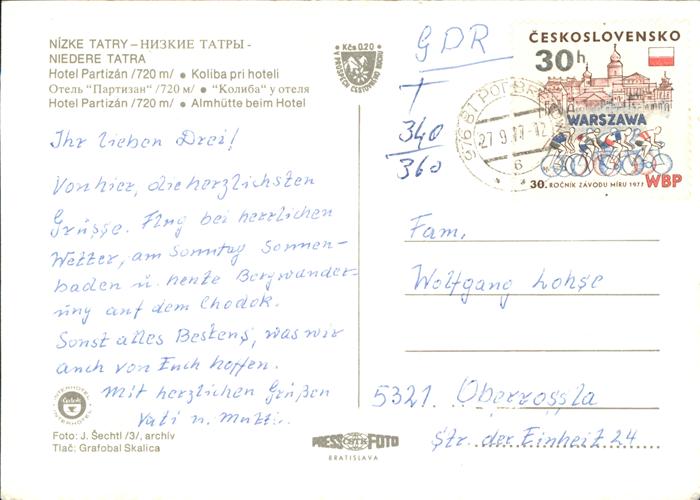 NÍZKE TATRY – НИЗКИЕ ТАТРЫ -
NIEDERE TATRA
Hotel Partizán /720 m/ ● Koliba pri hoteli
Отель "Партизан" /720 м/ ● "Колиба" у отеля
Hotel Partizán /720 m/ ● Almhütte beim Hotel
Kčs 0.20
V PROSPECH CESTOVNÉHO RUCHU
GDR
340
360
ČESKOSLOVENSKO
30h
WARSZAWA
30. ROČNÍK ZÁVODU MÍRU 1977 WBP
976 81 POD BR
27.9.77-12
6
Ihr lieben Drei!
Von hier, die herzlichsten
Grüsse. Flug bei herrlichen
Wetter, am Sonntag Sonnen-
baden u. heute Bergwander-
ung auf dem Chodok.
Sonst alles Bestens, was wir
auch von Euch hoffen.
Mit herzlichen Grüßen
Vati u. Mutti.
Fam.
Wolfgang Lohse
5321 Oberrossla
Str. der Einheit 24
INTERHOTEL
Čedok
INTERHOTEL
Foto: J. Šechtl /3/, archív
Tlač: Grafobal Skalica
PRESS ČSTK FOTO
BRATISLAVA